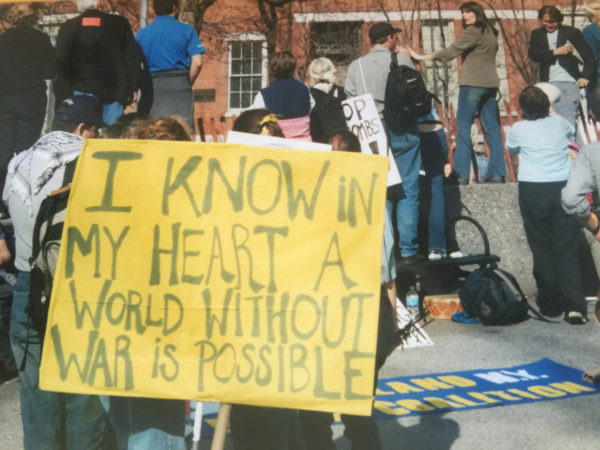 I KNOW iN
MY HEART A
WORLD WITHOUT
WAR iS POSSIBLE
OP
OMBS
LAND N.Y.
COALITION